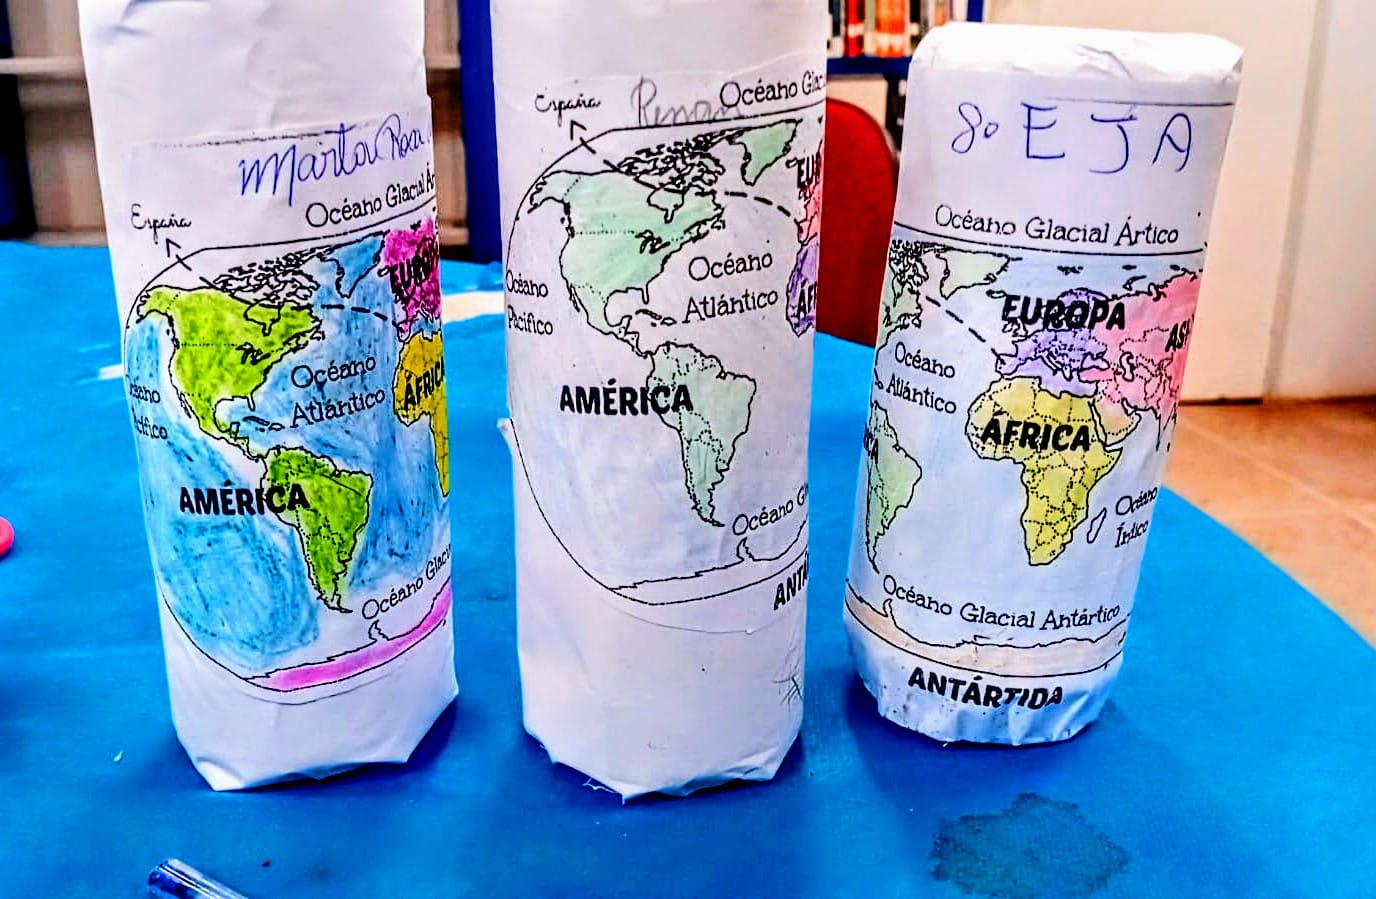 Marta Roca
España
Océano Glacial Ár
EUROPA
Océano
Atlántico
ÁFRICA
AMÉRICA
Océano Glac
España
Renan
Océano Glac
EUR
Océano
Pacífico
Océano
Atlántico
ÁF
AMÉRICA
Océano Gl
ANTÁ
8º EJA
Océano Glacial Ártico
EUROPA
ASI
Océano
Atlántico
ÁFRICA
Océano
Índico
Océano Glacial Antártico
ANTÁRTIDA